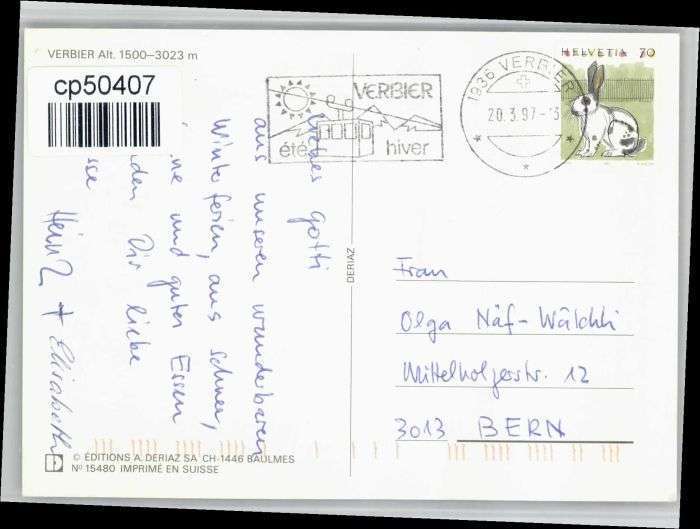 VERBIER Alt. 1500–3023 m
cp50407
VERBIER
été hiver
1936 VERBIER
20.3.97-13
HELVETIA 70
gotti
aus unseren wunderbaren
Winterferien, aus Schnee,
und guter Essen
Dir liebe
Heinz + Elisabeth
DERIAZ
Frau
Olga Näf-Wälchli
Mittelholzerstr. 12
3013 BERN
© ÉDITIONS A. DERIAZ SA CH-1446 BAULMES
Nº 15480 IMPRIMÉ EN SUISSE